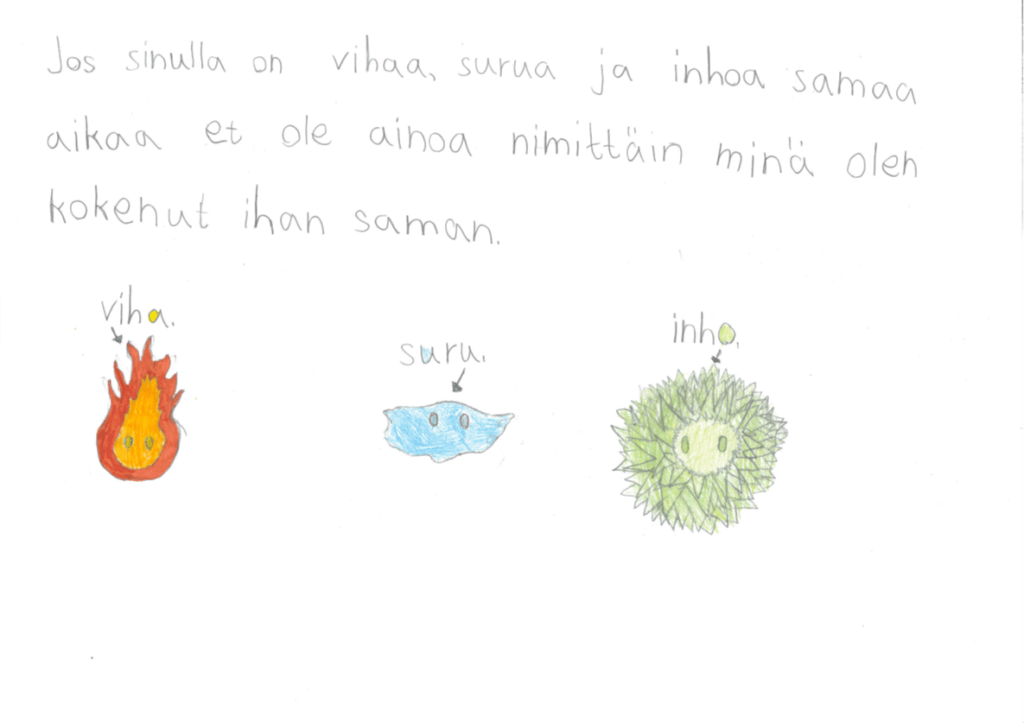 Jos sinulla on vihaa, surua ja inhoa samaa
aikaa et ole ainoa nimittäin minä olen
kokenut ihan saman.
viha.
suru.
inho.